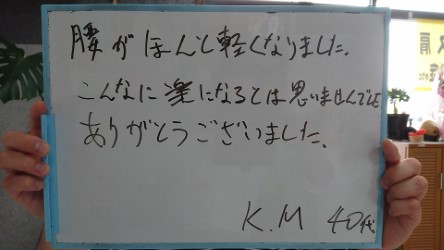 腰がほんと軽くなりました。
こんなに楽になるとは思いませんでした
ありがとうございました。
K.M 40代
肩